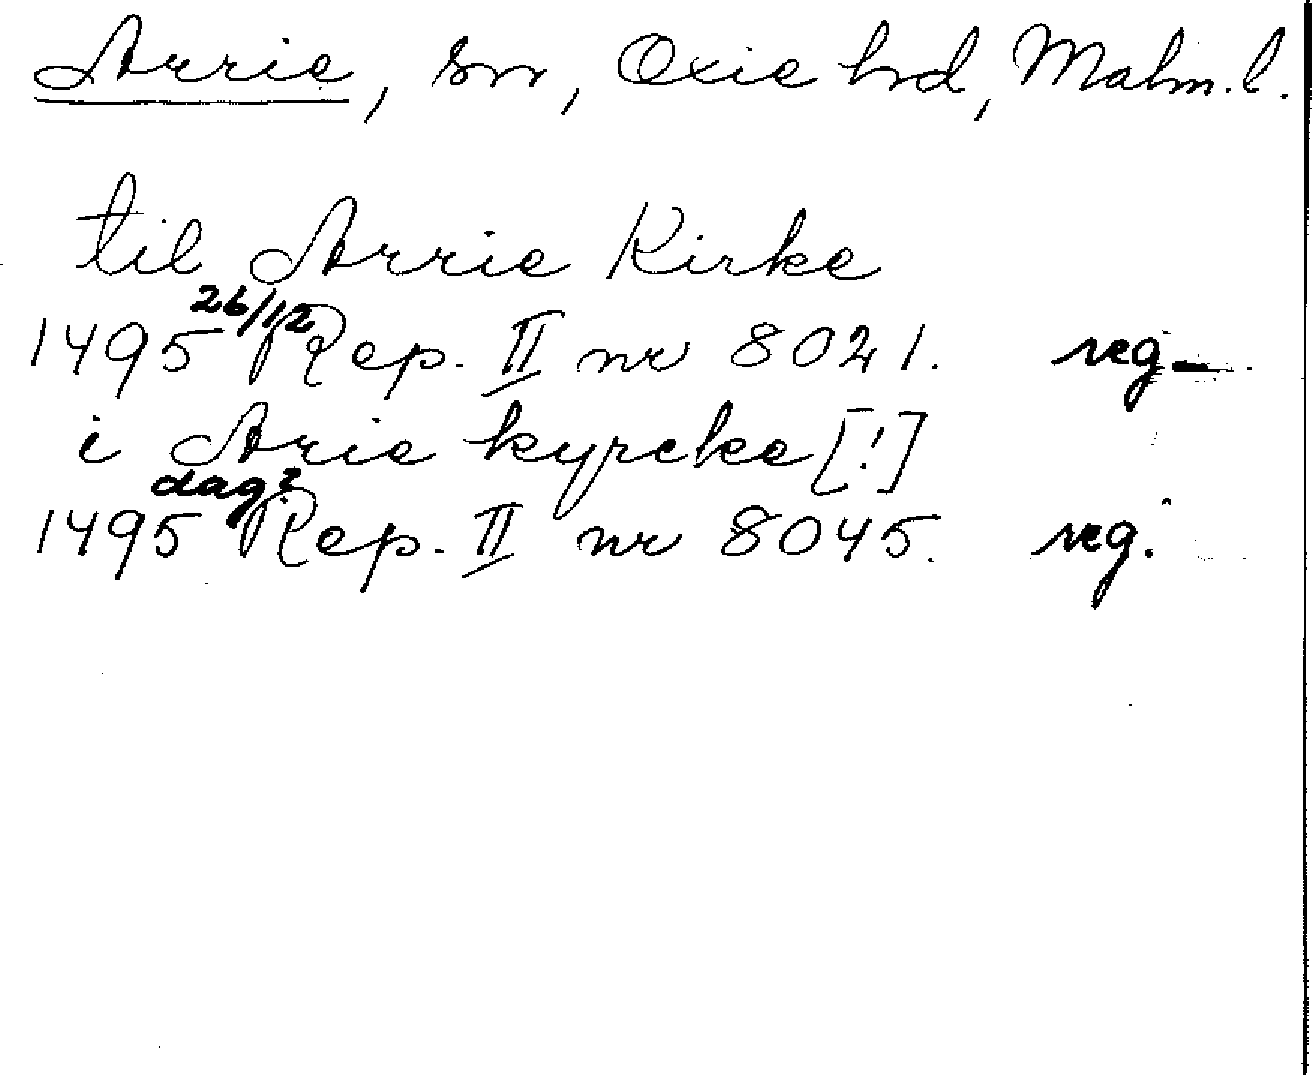 Arrie, sn, Oxie hd, Malm. l.
til Arrie Kirke
26/12
1495 Rep. II nr 8021. reg.
i Arie kyrcke [!]
dag?
1495 Rep. II nr 8045. reg.